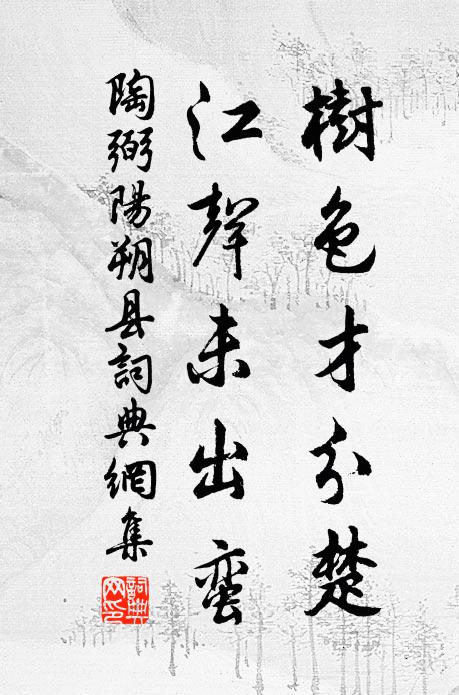 樹色才分楚
江聲未出蛮
陶弼陽朔县詞典網集